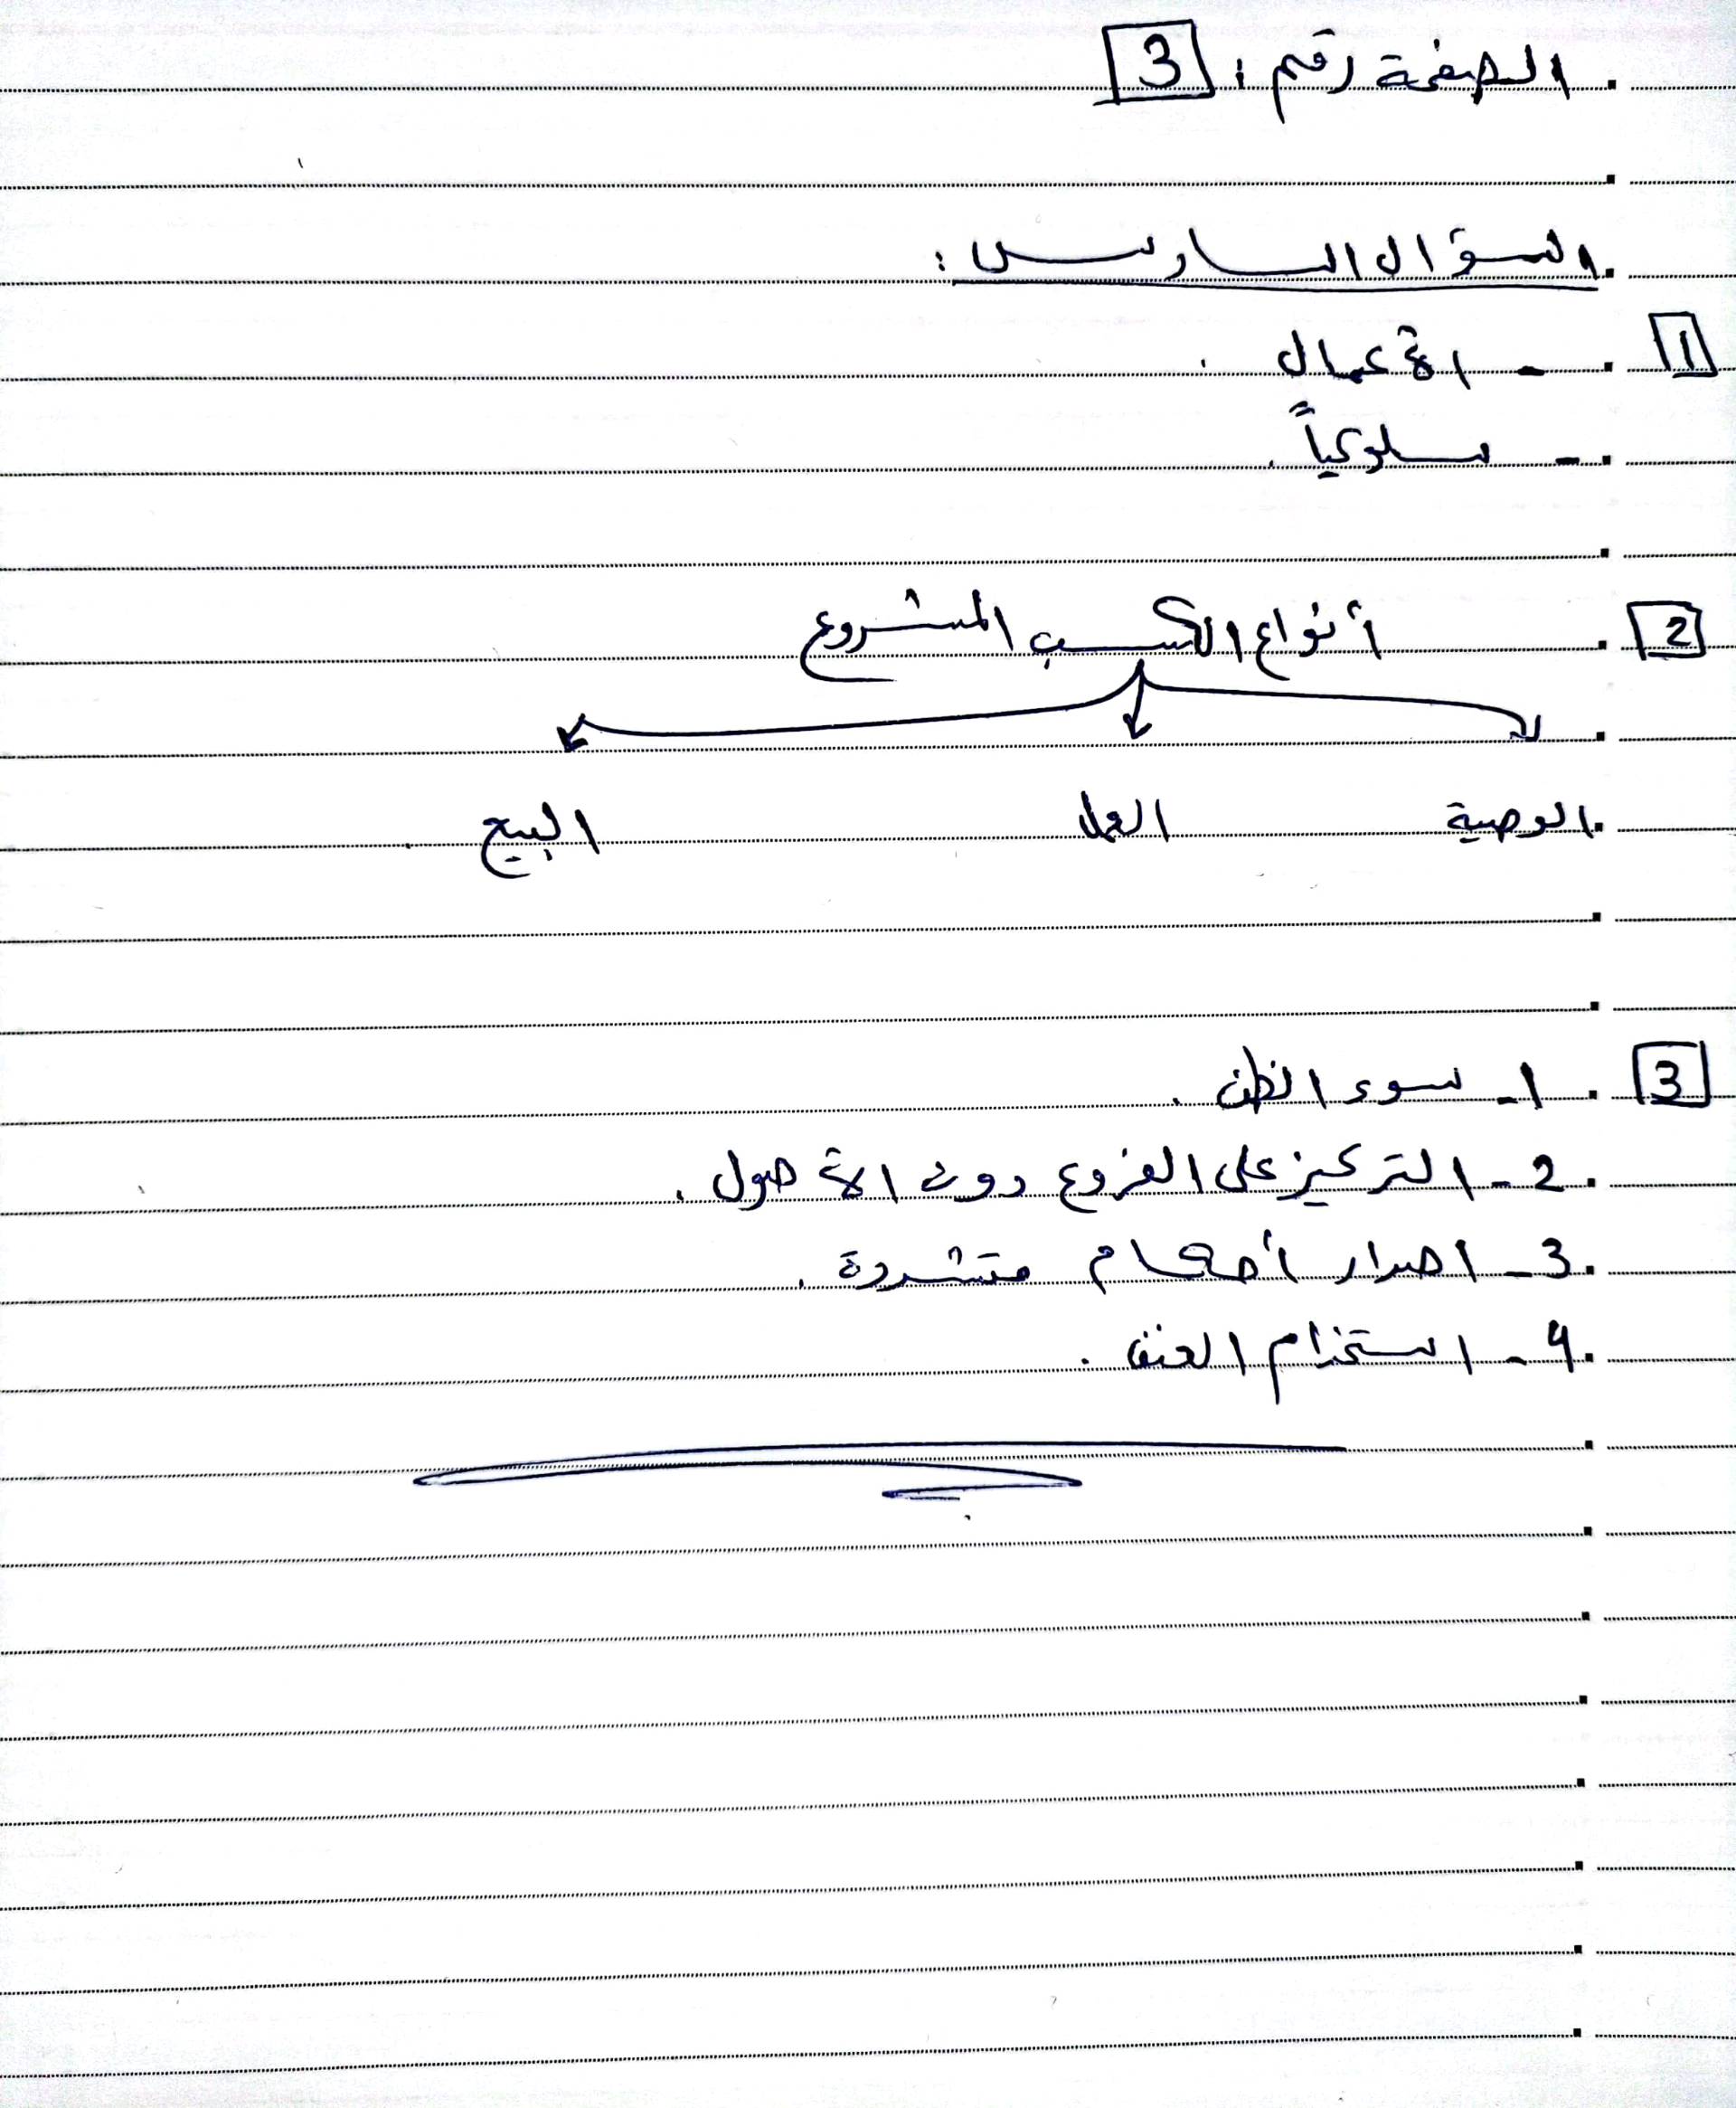 الصفحة رقم : 3
السؤال السادس :
1 - الأعمال .
- سلوكياً .
2 أنواع الكسب المشروع
الوصية العمل البيع
3 1- سوء الظن .
2- التركيز على الفروع دون الأصول .
3- اصدار أحكام متشددة .
4- استخدام العنف .